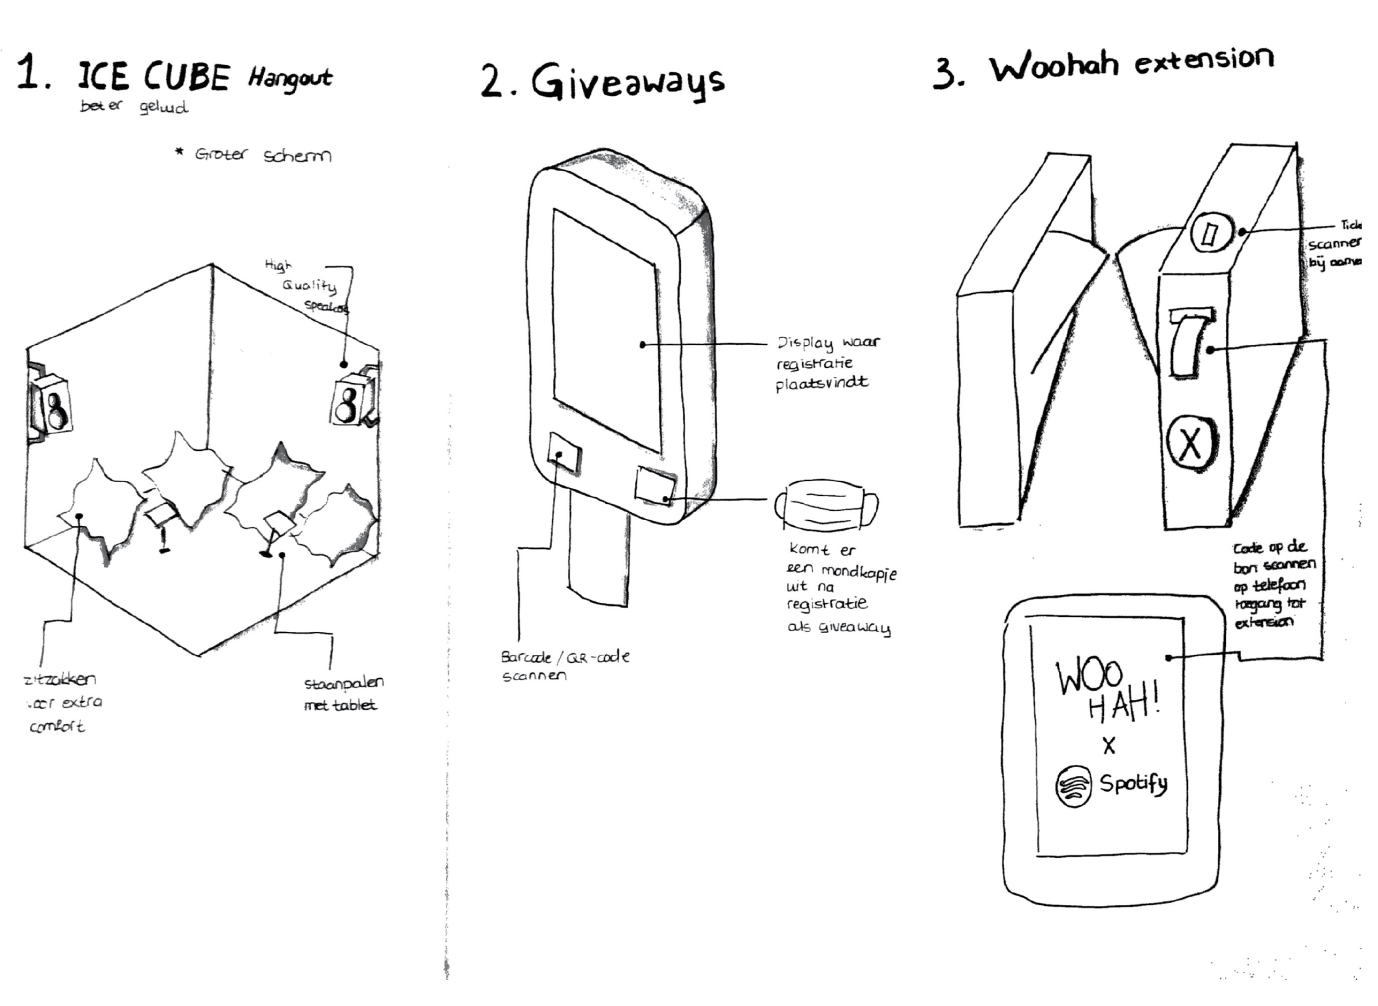 1. ICE CUBE Hangout
beter geluid
* Groter scherm
High
Quality
speakers
zitzakken
voor extra
comfort
staanpalen
met tablet
2. Giveaways
Display waar
registratie
plaatsvindt
komt er
een mondkapje
uit na
registratie
als giveaway
Barcode / QR-code
scannen
3. Woohah extension
scanner
bij
X
Code op de
bon scannen
op telefoon
toegang tot
extension
WOO
HAH!
X
Spotify